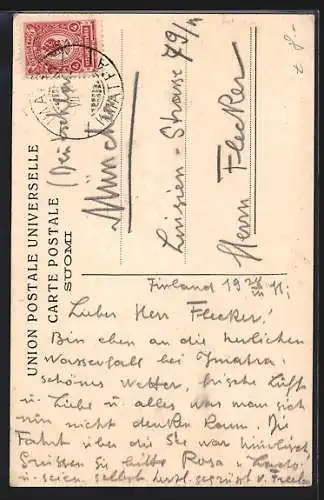 UNION POSTALE UNIVERSELLE
CARTE POSTALE
SUOMI
IMATRA
Herrn Flecker
Luisen-Strasse 79/
München
Finland 19 11
Lieber Herr Flecker!
Bin eben an die herlichen
Wasserfall bei Imatra.
schönes Wetter, frische Luft
u. Liebe u. alles was man sich
nur nicht denken kann. Die
Fahrt über die See war himlisch
Grüssen Sie bitte Rosa u.
u. seien selbst herzl. gegrüsst v.